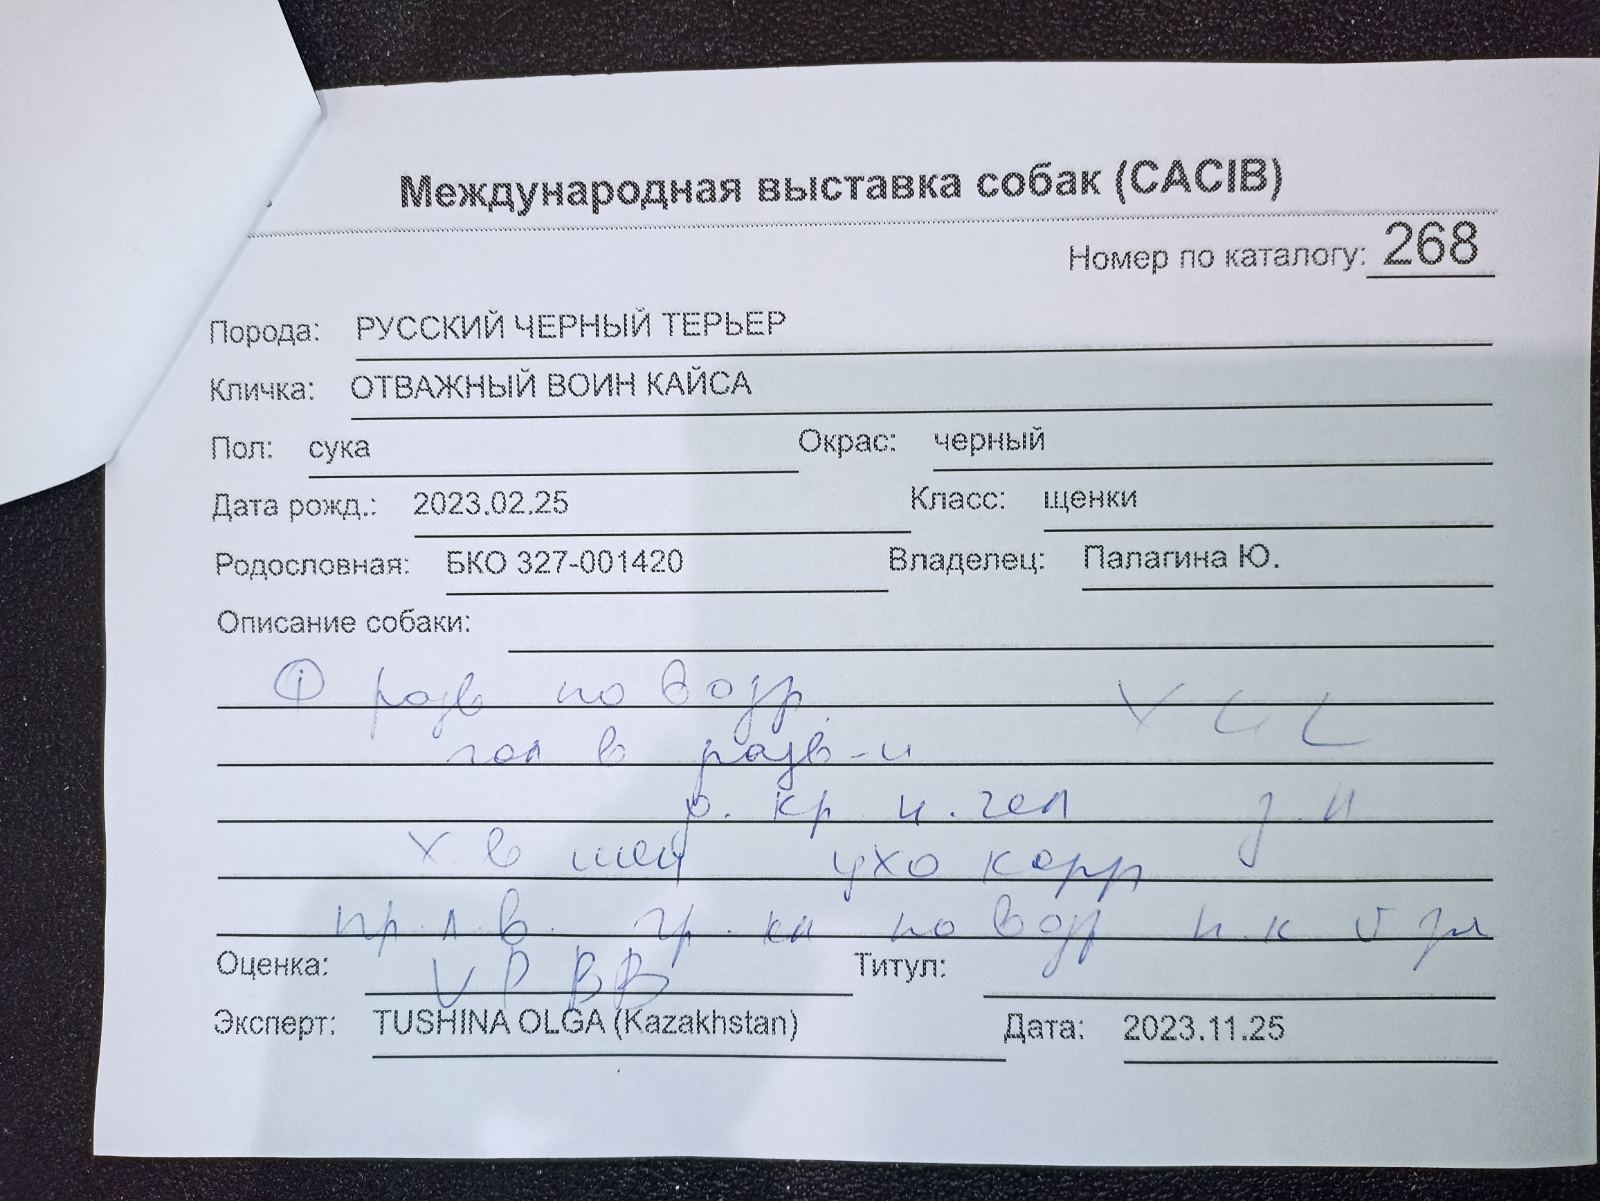 Международная выставка собак (CACIB)
Номер по каталогу: 268
Порода: РУССКИЙ ЧЕРНЫЙ ТЕРЬЕР
Кличка: ОТВАЖНЫЙ ВОИН КАЙСА
Пол: сука Окрас: черный
Дата рожд.: 2023.02.25 Класс: щенки
Родословная: БКО 327-001420 Владелец: Палагина Ю.
Описание собаки:
разв по возр
гол в разв-и
кр
ухо корр
пр. л. в. гр. кл по возр
Оценка: VP BB Титул:
Эксперт: TUSHINA OLGA (Kazakhstan) Дата: 2023.11.25